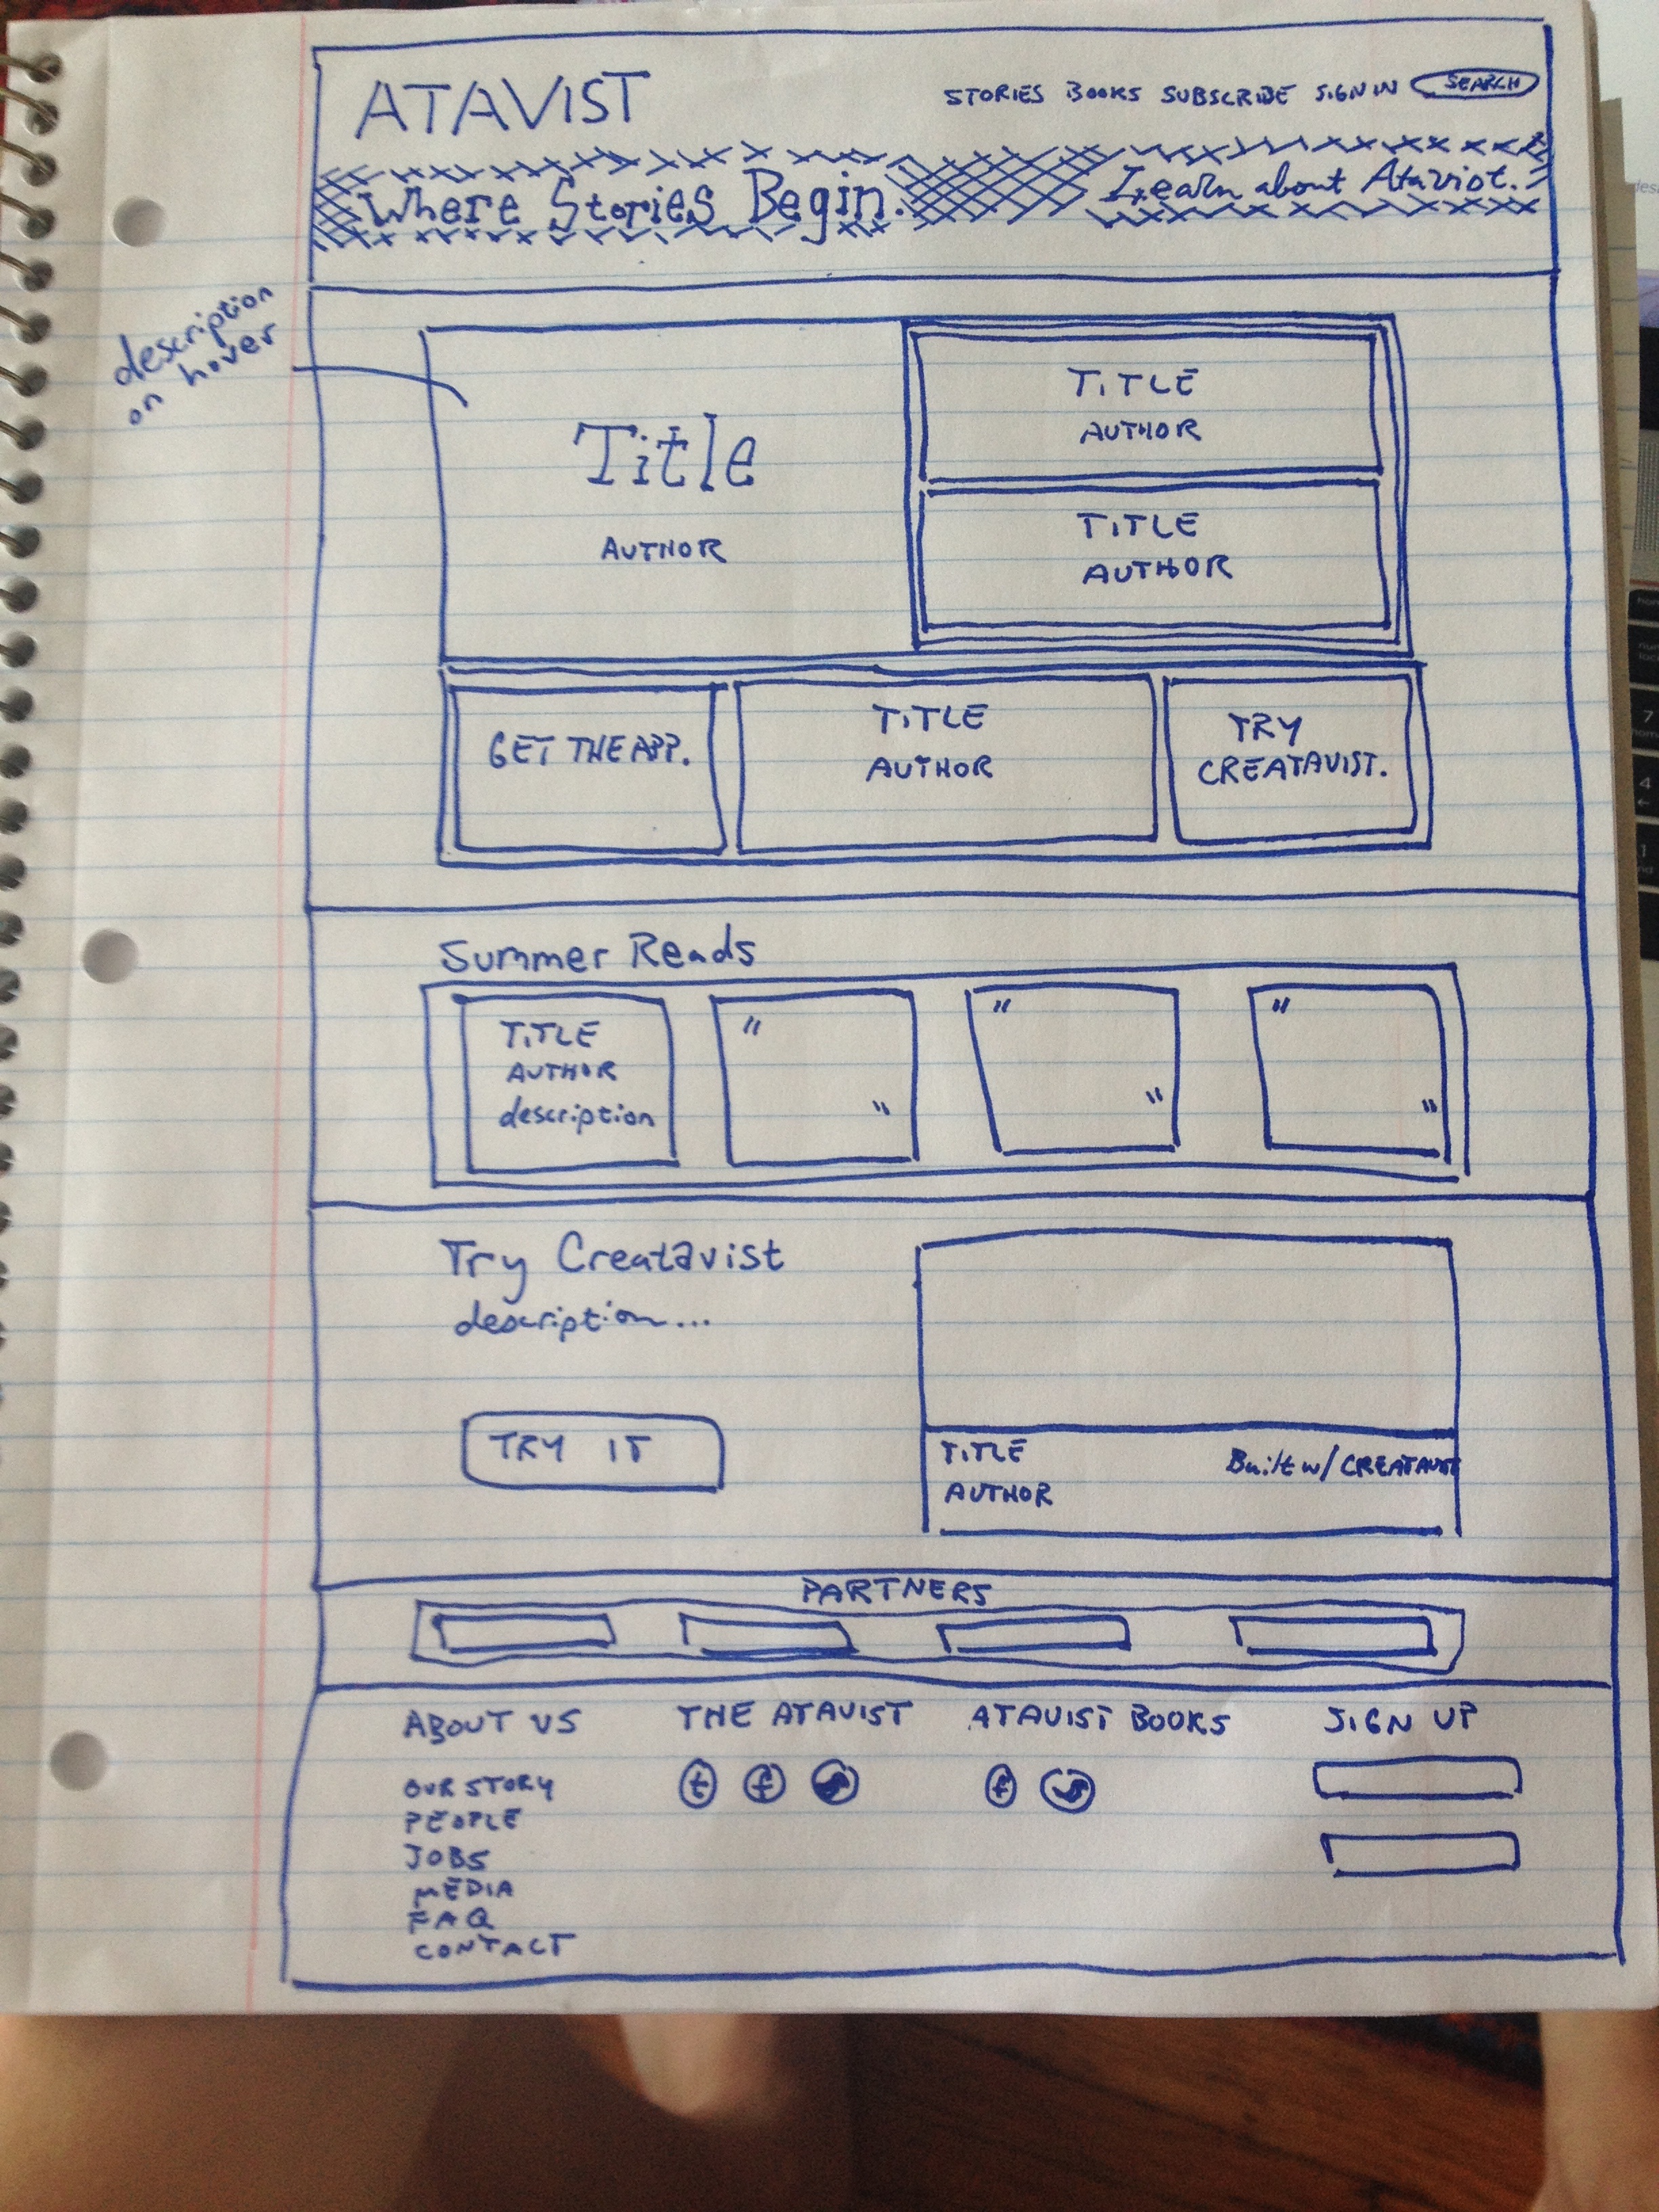 ATAVIST
STORIES BOOKS SUBSCRIBE SIGN IN SEARCH
Where Stories Begin.
Learn about Atavist.
description
on hover
Title
AUTHOR
TITLE
AUTHOR
TITLE
AUTHOR
GET THE APP.
TITLE
AUTHOR
TRY
CREATAVIST.
Summer Reads
TITLE
AUTHOR
description
" "
" "
" "
Try Creatavist
description...
TRY IT
TITLE
AUTHOR
Built w/ CREATAVIST
PARTNERS
ABOUT US
OUR STORY
PEOPLE
JOBS
MEDIA
FAQ
CONTACT
THE ATAVIST
t f
ATAVIST BOOKS
f
SIGN UP